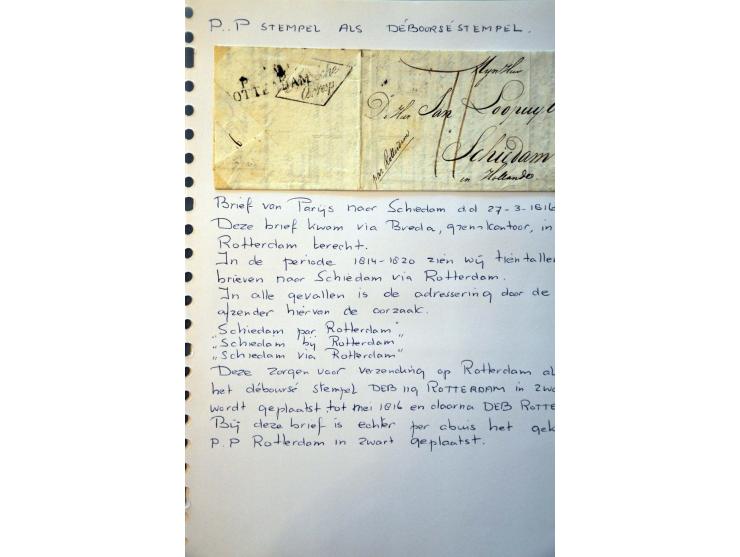 P..P STEMPEL ALS DÉBOURSÉSTEMPEL.
P P
OTTERDAM
Mÿn Heer
D'Heer Jan Loopuyt
Schiedam
in Hollande
par Rotterdam
Brief van Parijs naar Schiedam dd 27-3-1816
Deze brief kwam via Breda, grenskantoor, in
Rotterdam terecht.
In de periode 1814-1820 zien wij tientallen
brieven naar Schiedam via Rotterdam.
In alle gevallen is de adressering door de
afzender hiervan de oorzaak.
„Schiedam par Rotterdam"
„Schiedam bij Rotterdam"
„Schiedam via Rotterdam"
Deze zorgen voor verzending op Rotterdam al
het déboursé stempel DEB 119 ROTTERDAM in zwa
wordt geplaatst tot mei 1816 en daarna DEB ROTTE
Bij deze brief is echter per abuis het gek
P.P Rotterdam in zwart geplaatst.